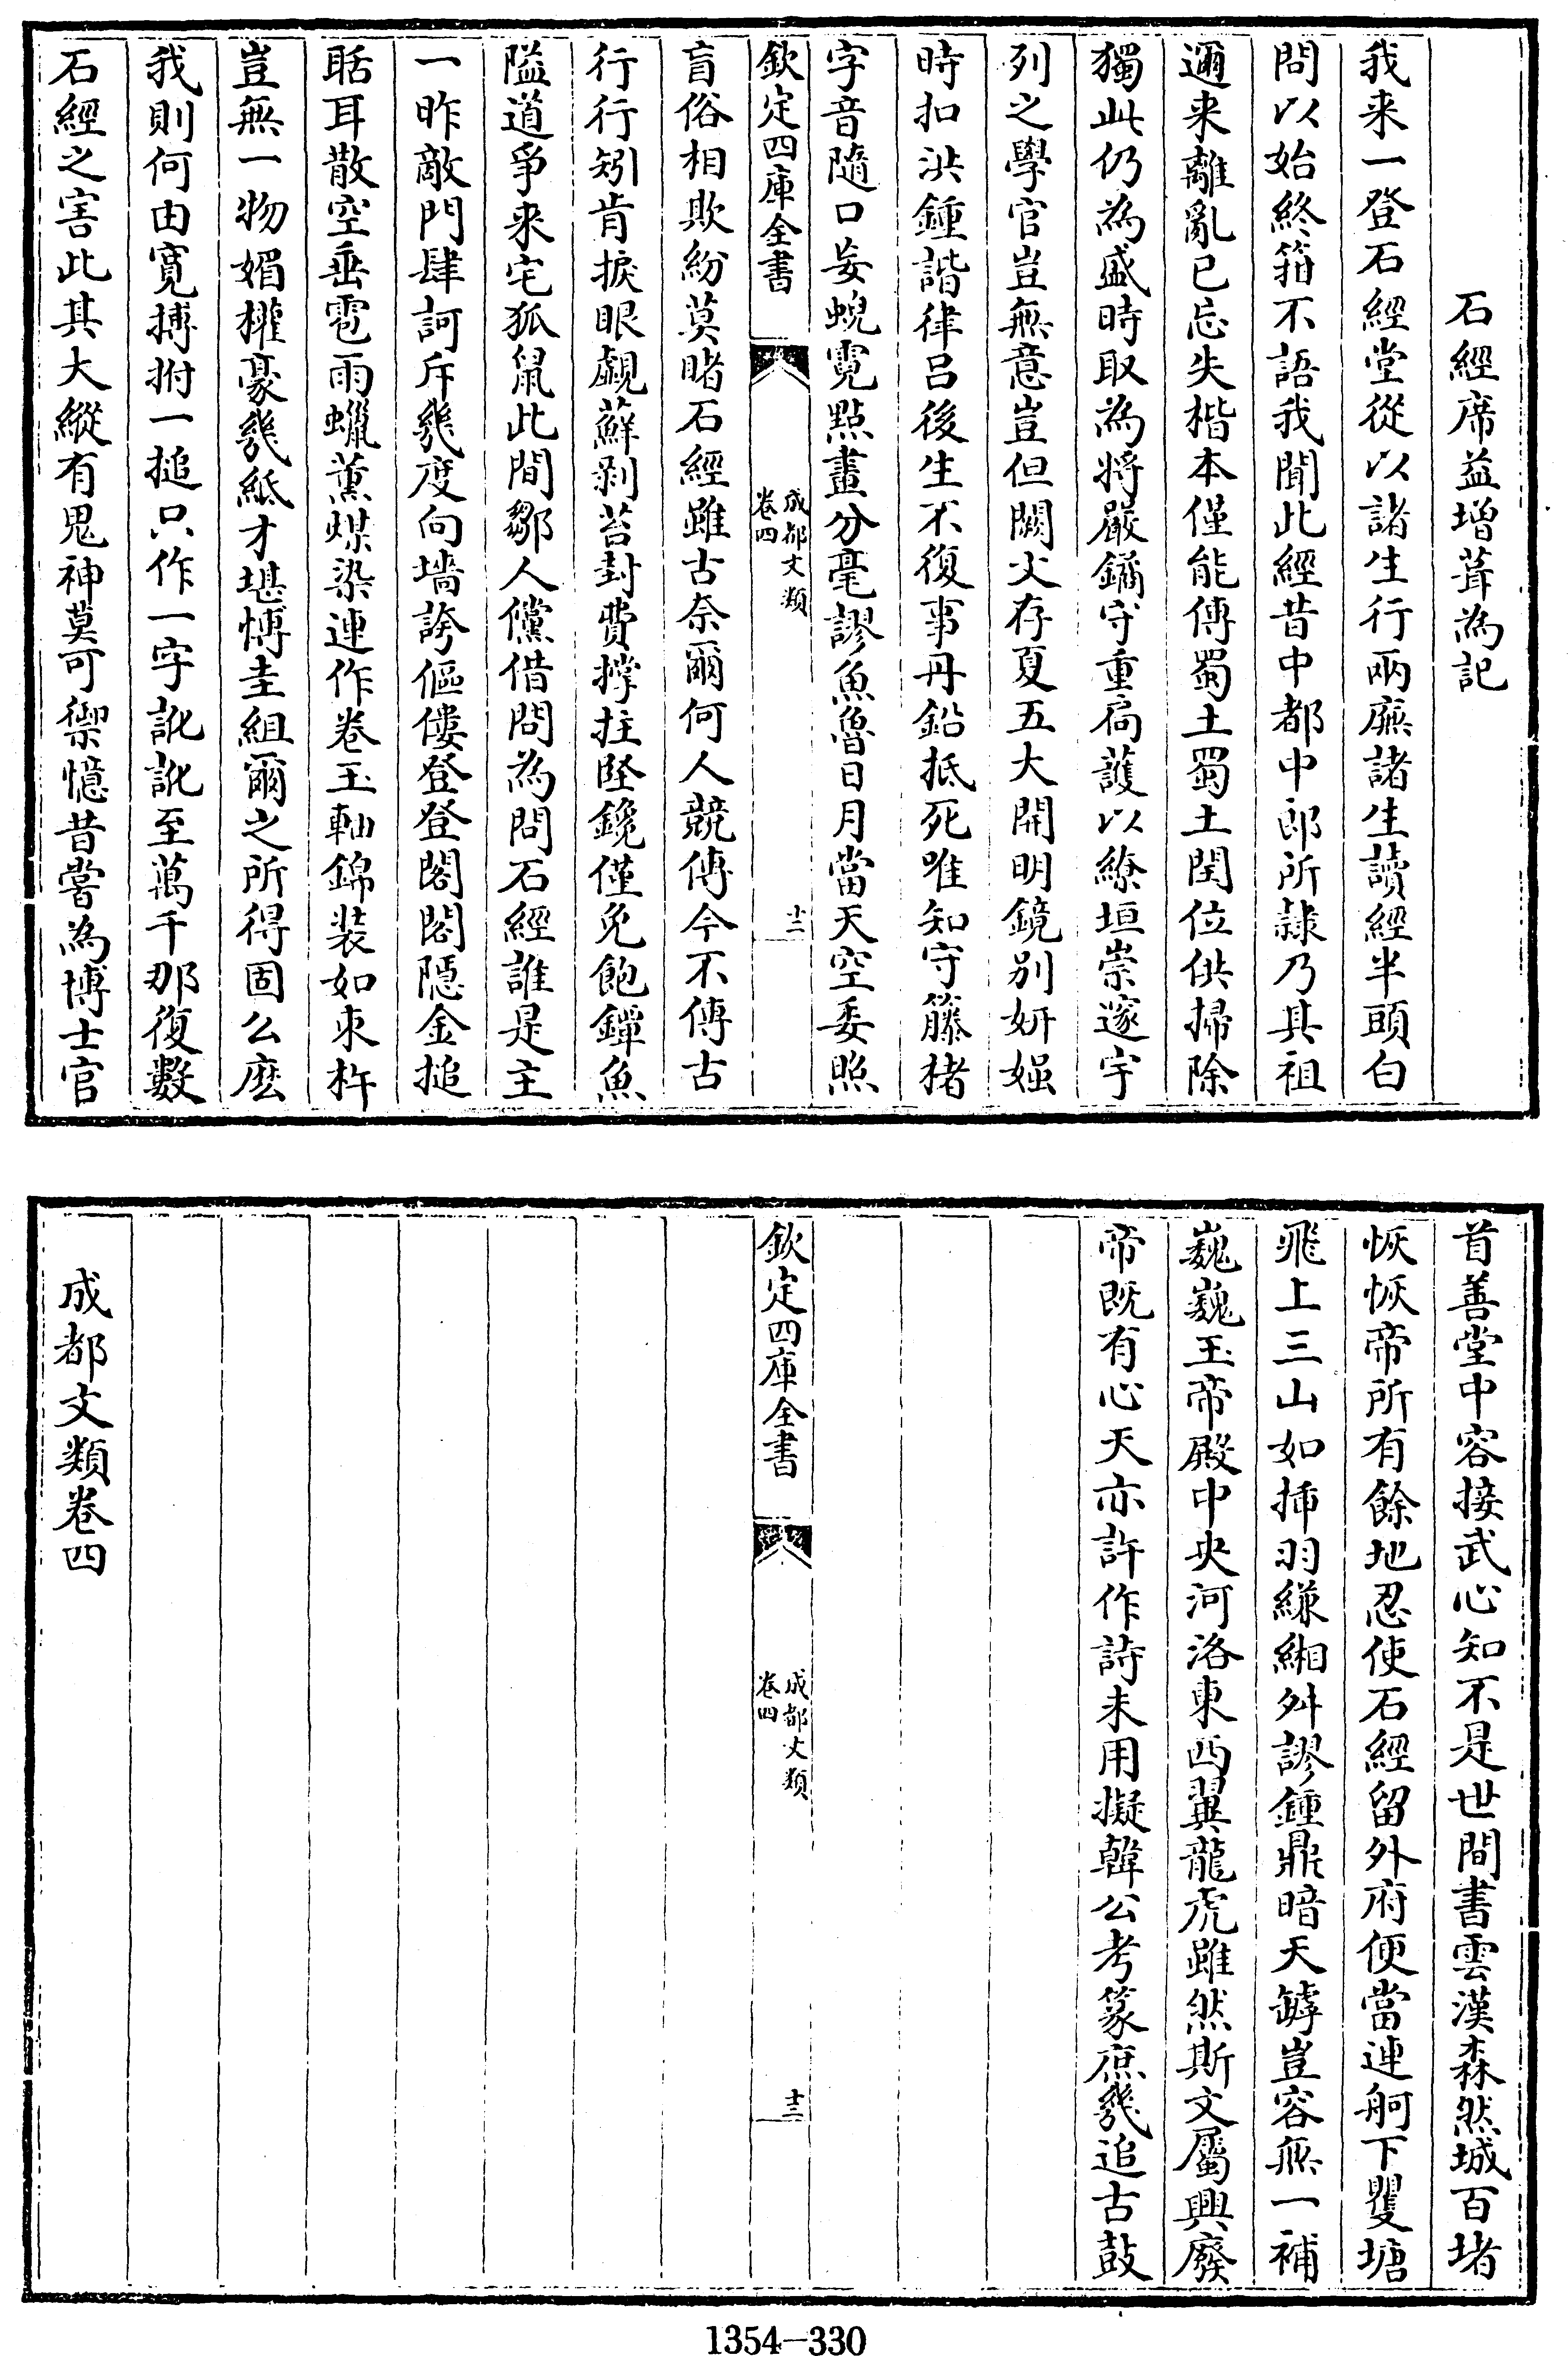 石經席益增葺為記
我来一登石經堂從以諸生行兩廡諸生讀經半頭白
問以始終箝不語我聞此經昔中都中郎所隷乃其祖
邇来離亂已忘失楷本僅能傳蜀土蜀土閏位供掃除
獨此仍為盛時取為將嚴鐍守重扃護以繚垣崇邃宇
列之學官豈無意豈但闕火存夏五大開明鏡别妍媸
時扣洪鍾諧律吕後生不復事丹鉛抵死唯知守籐楮
字音隨口妄蜺霓點畫分毫謬魚魯日月當天空委照
欽定四庫全書
成都文類
卷四
十二
盲俗相欺紛莫睹石經雖古奈爾何人競傳今不傳古
行行矧肯捩眼覷蘚剥苔封費撐拄堅鑱僅免飽鱓魚
隘道爭来宅狐鼠此間鄒人儻借問為問石經誰是主
一昨敵門肆訶斥幾度向墻誇傴僂登登閣閣隱金搥
聒耳散空垂雹雨蠟薰煤染連作卷玉軸錦装如束杵
豈無一物媚權豪幾紙才堪慱圭組爾之所得固公麽
我則何由寛搏拊一搥只作一字訛訛至萬千那復數
石經之害此其大縱有鬼神莫可禦憶昔嘗為博士官
首善堂中容接武心知不是世間書雲漢森然城百堵
恢恢帝所有餘地忍使石經留外府便當連舸下瞿塘
飛上三山如揷羽縑緗舛謬鍾鼎暗天罅豈容無一補
巍巍玉帝殿中央河洛東西翼龍虎雖然斯文屬興廢
帝既有心天亦許作詩未用擬韓公考篆庶幾追古鼓
欽定四庫全書
成都文類
卷四
十三
成都文類卷四
1354-330